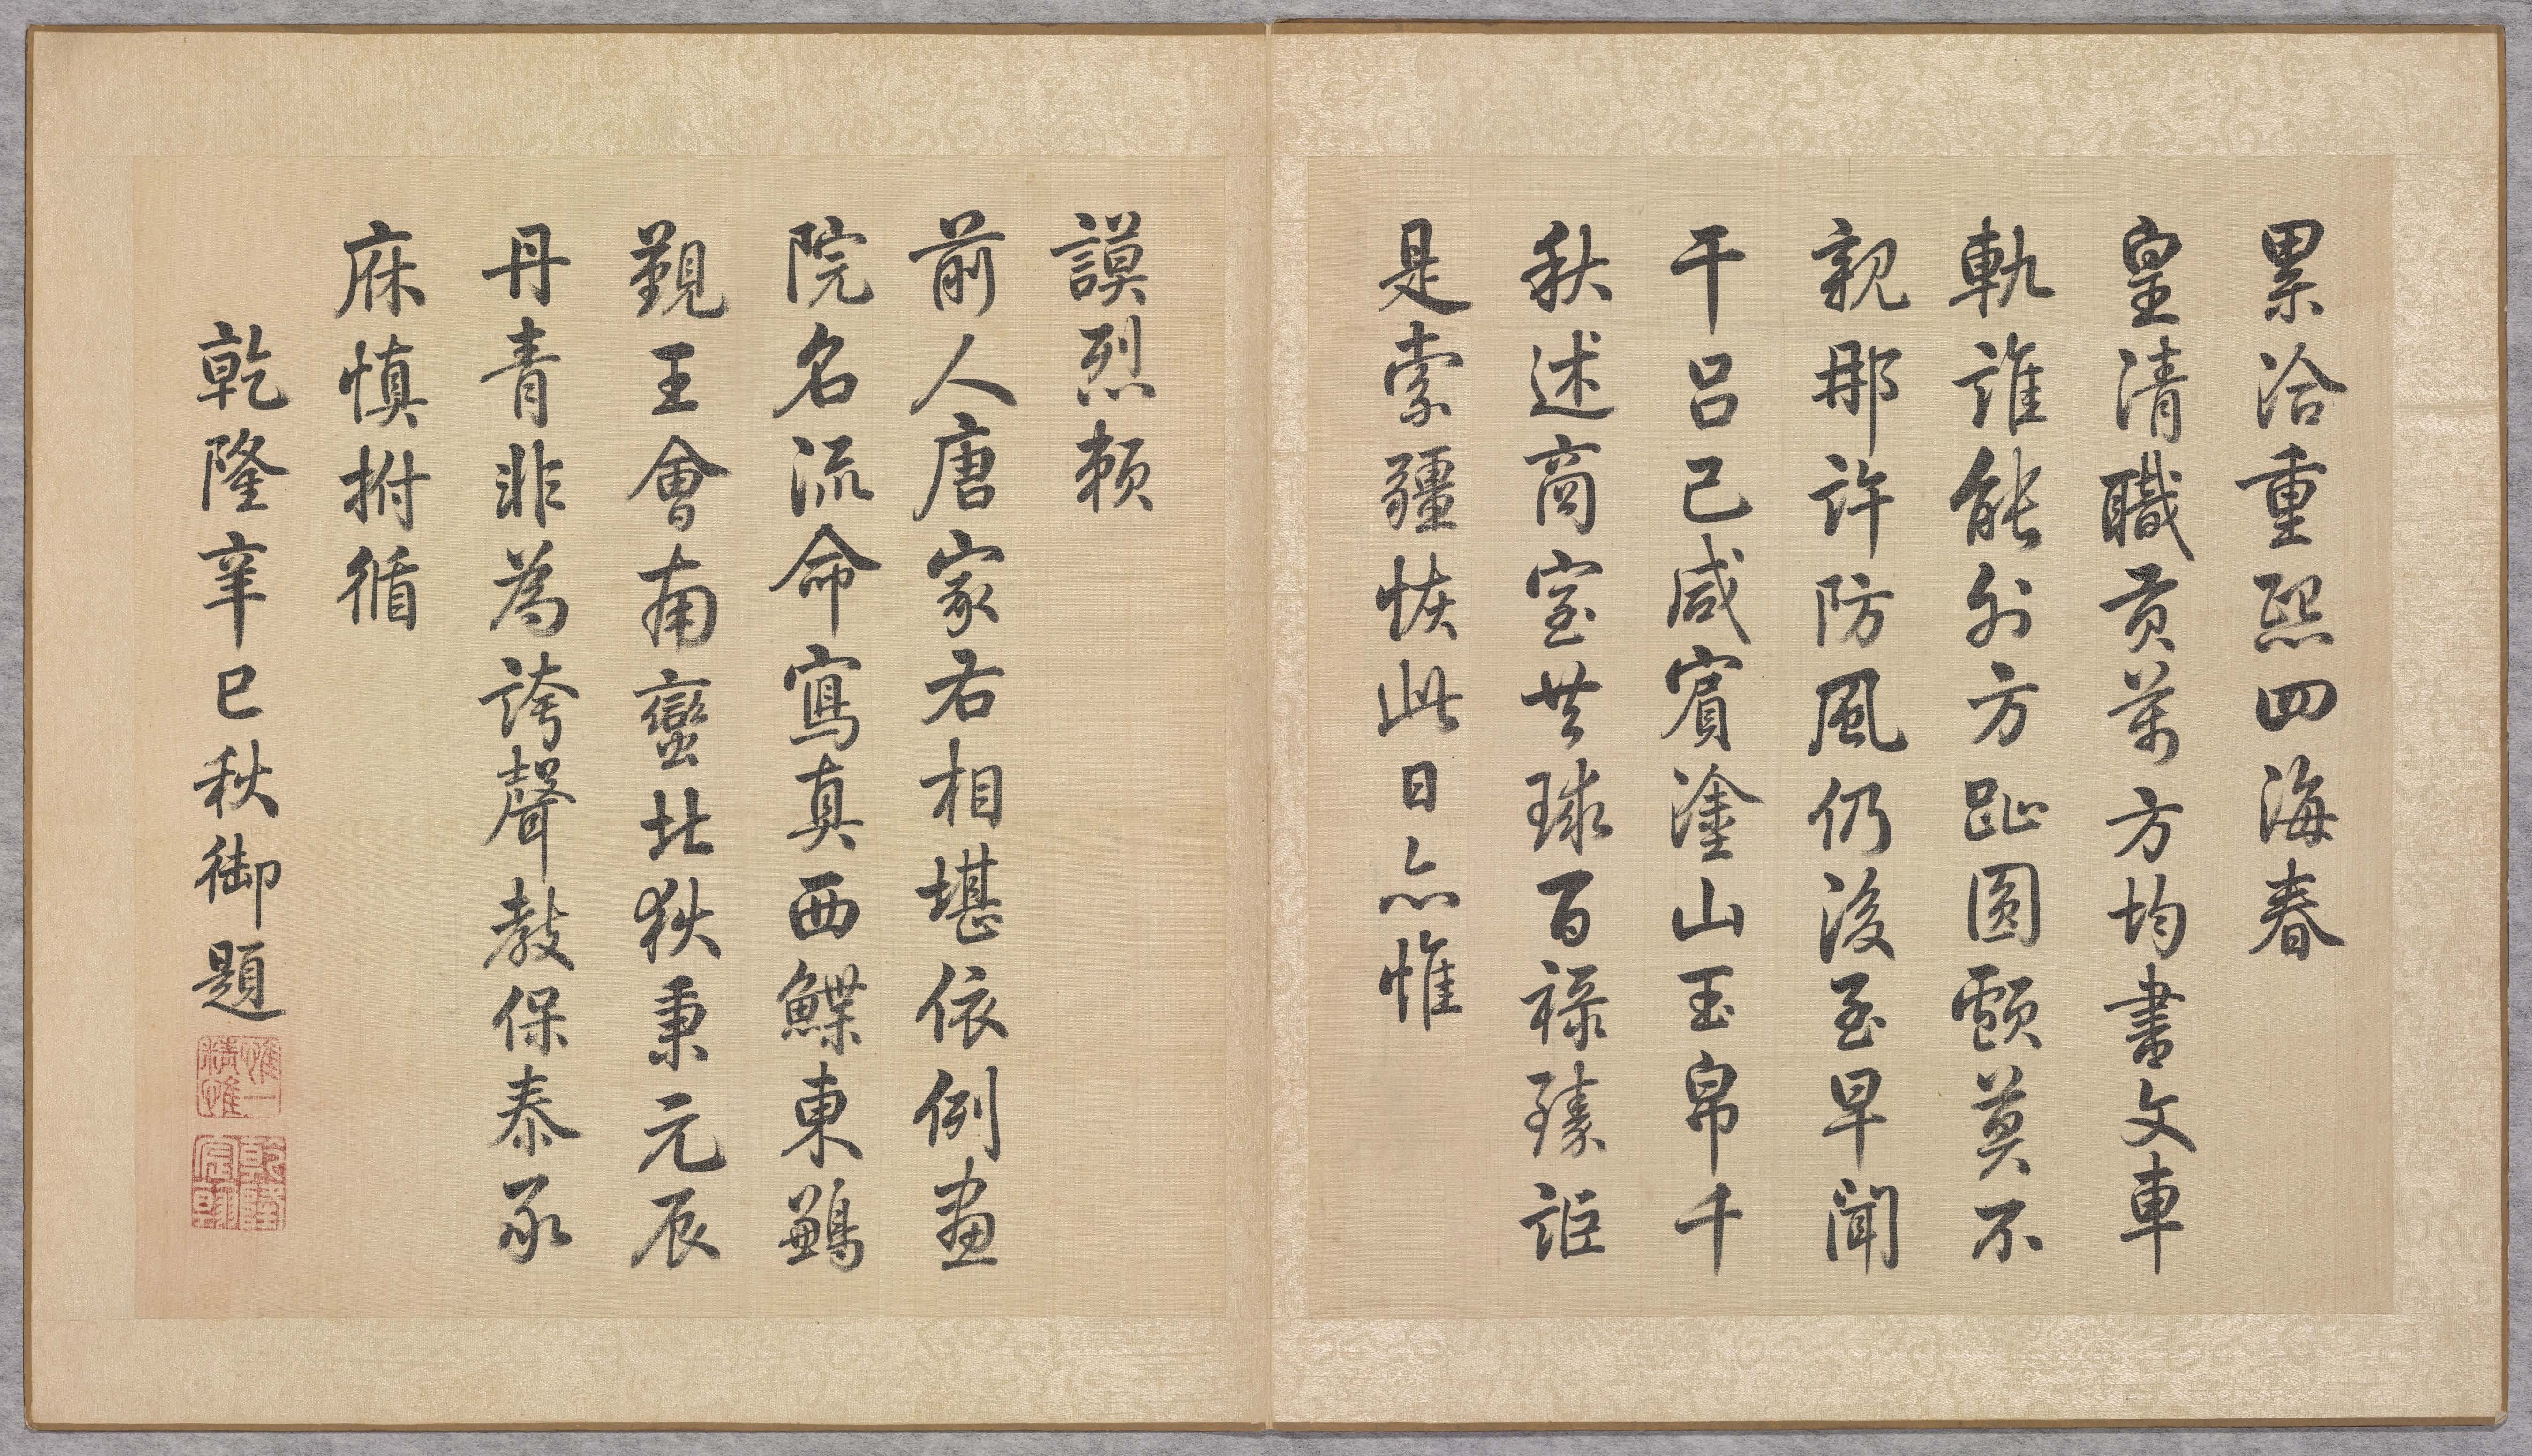 累洽重熙四海春
皇清職貢萬方均書文車
軌誰能外方趾圓顱莫不
親那許防風仍後至早聞
干呂已咸賓塗山玉帛千
秋述商室共球百祿臻詎
是索疆恢此日亦惟
謨烈賴
前人唐家右相堪依例畫
院名流命寫真西鰈東鶼
覲王會南蠻北狄秉元辰
丹青非為誇聲教保泰承
庥慎拊循
乾隆辛巳秋御題
惟精惟一
乾隆宸翰